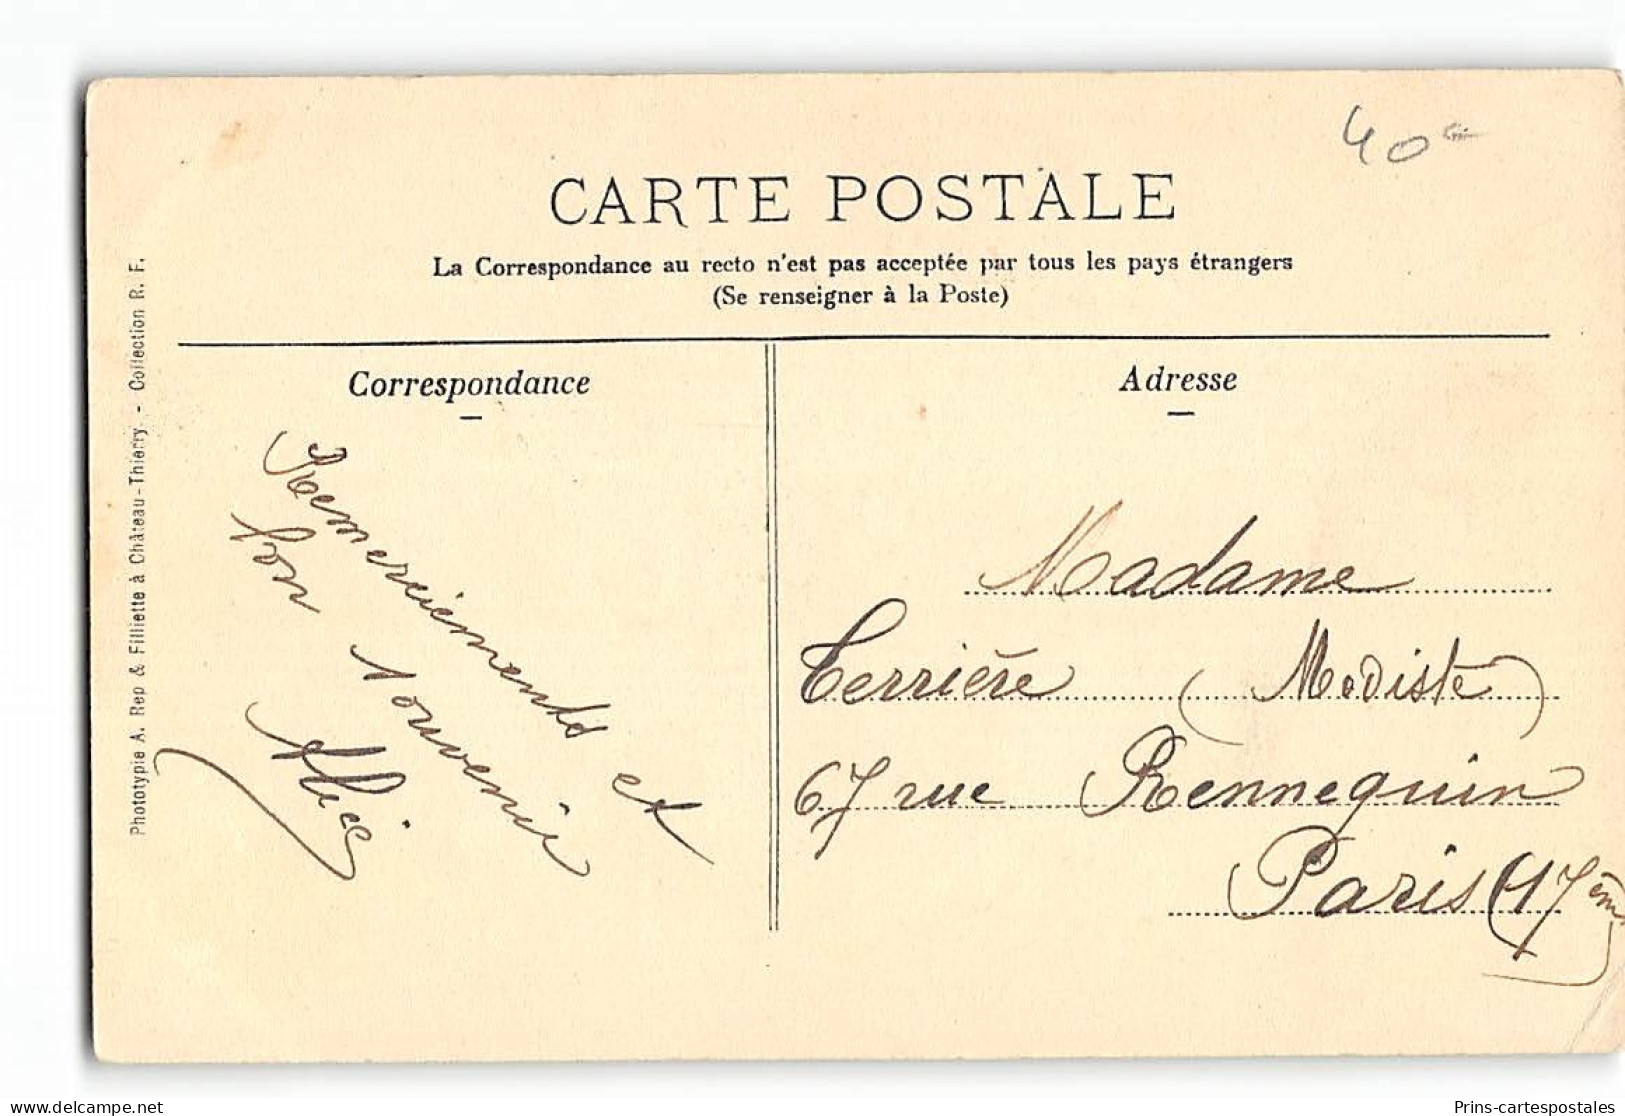 40
CARTE POSTALE
La Correspondance au recto n'est pas acceptée par tous les pays étrangers
(Se renseigner à la Poste)
Phototypie A. Rep & Filliette à Château-Thierry. - Collection R. F.
Correspondance
Remerciements et
bon souvenir
Alice
Adresse
Madame
Terrière (Modiste)
67 rue Rennequin
Paris (17ème)
www.delcampe.net
Prins-cartespostales